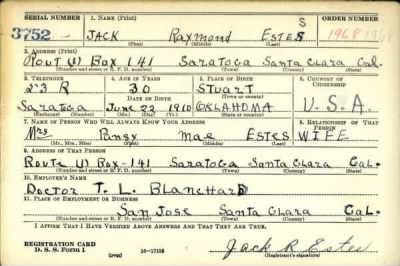 SERIAL NUMBER 1. NAME (Print) ORDER NUMBER
S
3752 JACK Raxmond Estes 1968
(First) (Middle) (Last)
2. ADDRESS (Print)
Rout (1) Box 141 Saratoga Santa Clara Cal.
(Number and street or R. F. D. number) (Town) (County) (State)
3. TELEPHONE 4. AGE IN YEARS 5. PLACE OF BIRTH 6. COUNTRY OF CITIZENSHIP
23 R 30 Stuart
DATE OF BIRTH
Saratoga June 22 1910 OKLAHOMA U.S.A.
(Exchange) (Number) (Mo.) (Day) (Yr.) (State or country)
7. NAME OF PERSON WHO WILL ALWAYS KNOW YOUR ADDRESS 8. RELATIONSHIP OF THAT PERSON
Mrs Pansy Mae Estes WIFE
(Mr., Mrs., Miss) (First) (Middle) (Last)
9. ADDRESS OF THAT PERSON
Route (1) Box-141 Saratoga Santa Clara Cal.
(Number and street or R. F. D. number) (Town) (County) (State)
10. EMPLOYER'S NAME
Doctor T. L. Blanchard
11. PLACE OF EMPLOYMENT OR BUSINESS
San Jose Santa Clara Cal.
(Number and street or R. F. D. number) (Town) (County) (State)
I AFFIRM THAT I HAVE VERIFIED ABOVE ANSWERS AND THAT THEY ARE TRUE.
REGISTRATION CARD
D. S. S. Form 1 16-17105 Jack R Estes
(Registrant's signature)